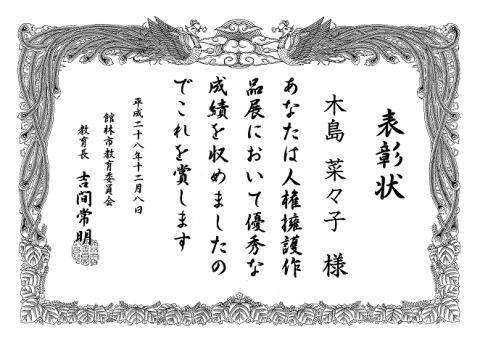 表彰状
木島 菜々子 様
あなたは人権擁護作
品展において優秀な
成績を収めましたの
でこれを賞します
平成二十八年十二月八日
館林市教育委員会
教育長 吉間常明